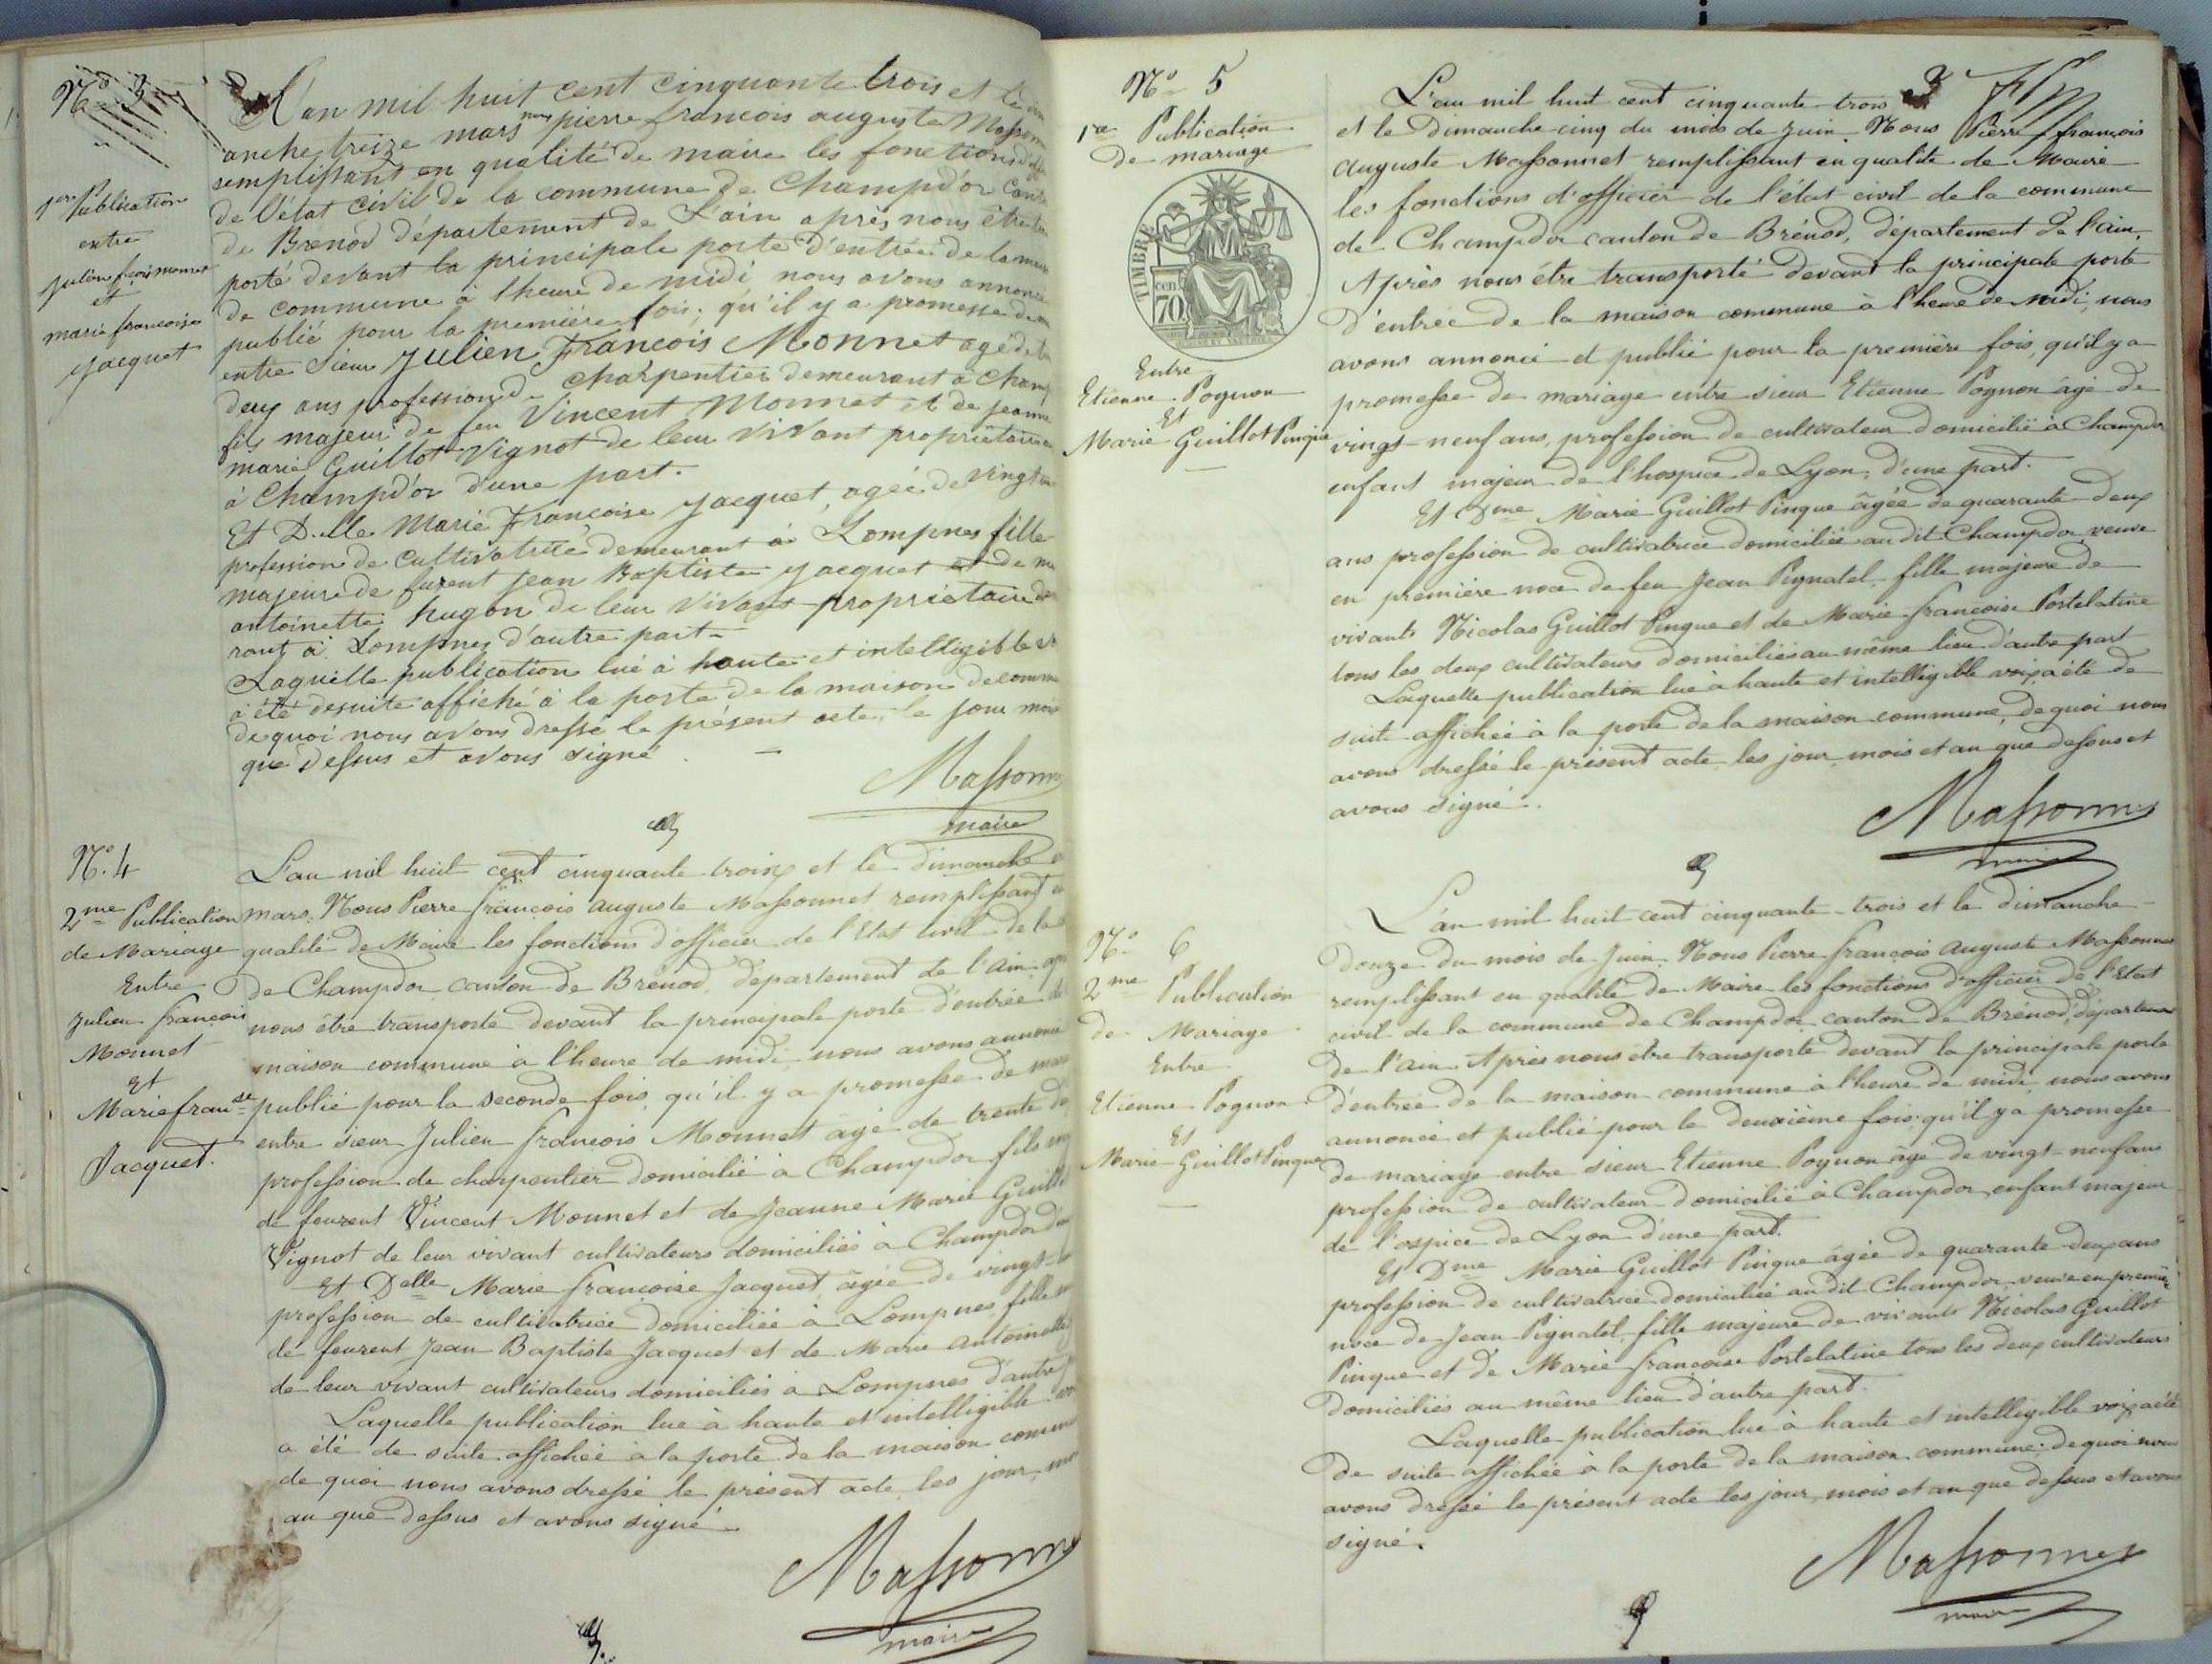 N° 3
1ere Publication
entre
julien fçois monnet
et
marie francoise
jacquet
L'an mil huit cent cinquante trois et le
anche treize mars nous pierre francois auguste Massonn
remplissant en qualité de maire les fonctions
de l'état civil de la commune de Champd'or Cant
de Brenod département de L'ain après nous être
porté devant la principale porte d'entrée de la
de commune à l'heure de midi nous avons annoncé
publié pour la premiére fois; qu'il y a promesse de
entre Sieur Julien François Monnet agé de
deux ans profession de charpentier demeurant à Champ
fils majeur de feu Vincent Monnet et de jeanne
marie Guillot Vignot de leur vivant propriétaire
à Champd'or d'une part.
Et D.lle Marie Françoise Jacquet, agée de vingt
profession de Cultivatrice demeurant à Lompnes fille
majeure de furent Jean Baptiste Jacquet et de
antoinette hugon de leur vivant propriétaire
rant à Lompnes d'autre part
Laquelle publication lue à haute et intelligible
a été desuite affiché à la porte de la maison de comm
de quoi nous avons dressé le présent acte, le jour mois
que dessus et avons signé
Massonn
maire
N° 4
2me Publication
de Mariage
Entre
Julien françois
Monnet
Et
Marie franse
Jacquet.
L'an mil huit cent cinquante trois et le dimanche
mars, Nous Pierre françois auguste Massonnet remplissant
qualité de Maire les fonctions d'officier de l'Etat Civil de la
de Champdor canton de Brénod, département de l'ain
nous être transporté devant la principale porte d'entrée
maison commune à l'heure de midi, nous avons annoncé
publié pour la seconde fois, qu'il y a promesse de
entre sieur Julien françois Monnet agé de trente
profession de charpentier domicilié à Champdor fils
de feurent Vincent Monnet et de Jeanne Marie
Vignot de leur vivant cultivateurs domiciliés à Champdor
Et Delle Marie françoise Jacquet, âgée de vingt
profession de cultivatrice domiciliée à Lompnes, fille
de feurent Jean Baptiste Jacquet et de Marie antoinette
de leur vivant cultivateurs domiciliés à Lompnes d'autre
Laquelle publication lue à haute et intelligible
a été de suite affichée à la porte de la maison commu
de quoi nous avons dressé le présent acte, les jour,
an que dessus et avons signé
Massonn
maire
3
N° 5
1re Publication
de mariage
TIMBRE
cen
70
Entre
Etienne Pognon
Et
Marie Guillot Pinque
L'an mil huit cent cinquante trois
et le Dimanche cinq du mois de Juin Nous Pierre françois
auguste Massonnet remplissant en qualité de Maire
les fonctions d'officier de l'état civil de la commune
de Champdor canton de Brénod, département de l'ain,
Après nous être transporté devant la principale porte
d'entrée de la maison commune à l'heure de midi, nous
avons annoncé et publié pour la première fois, qu'il y a
promesse de mariage entre sieur Etienne Pognon âgé de
vingt-neuf ans, profession de cultivateur domicilié à Champdor
enfant majeur de l'hospice de Lyon, d'une part.
Et Dme Marie Guillot Pinque âgée de quarante-deux
ans profession de cultivatrice domiciliée audit Champdor veuve
en première noce de feu Jean Pignatel, fille majeure de
vivants Nicolas Guillot Pinque et de Marie françoise Portelatine
tous les deux cultivateurs domiciliés au même lieu d'autre part
Laquelle publication lue à haute et intelligible voix, a été de
suite affichée à la porte de la maison commune, de quoi nous
avons dressé le présent acte les jour, mois et an que dessus et
avons signé.
Massonnet
maire
N° 6
2me Publication
de Mariage
Entre
Etienne Pognon
Et
Marie Guillot Pinque
L'an mil huit cent cinquante-trois et le dimanche
douze du mois de Juin, Nous Pierre françois auguste Massonnet
remplissant en qualité de Maire les fonctions d'officier de l'Etat
civil de la commune de Champdor canton de Brénod, département
de l'ain. Après nous être transporté devant la principale porte
d'entrée de la maison commune à l'heure de midi, nous avons
annoncé et publié pour la deuxième fois, qu'il y a promesse
de mariage entre sieur Etienne Pognon âgé de vingt-neuf ans
profession de cultivateur domicilié à Champdor, enfant majeur
de l'ospice de Lyon d'une part.
Et Dme Marie Guillot Pinque âgée de quarante deux ans
profession de cultivatrice domiciliée audit Champdor, veuve en première
noce de Jean Pignatel, fille majeure de vivants Nicolas Guillot
Pinque et de Marie françoise Portelatine tous les deux cultivateurs
domiciliés au même lieu d'autre part.
Laquelle publication lue à haute et intelligible voix, a été
de suite affichée à la porte de la maison commune; de quoi nous
avons dressé le présent acte les jour, mois et an que dessus et avons
signé.
Massonnet
maire